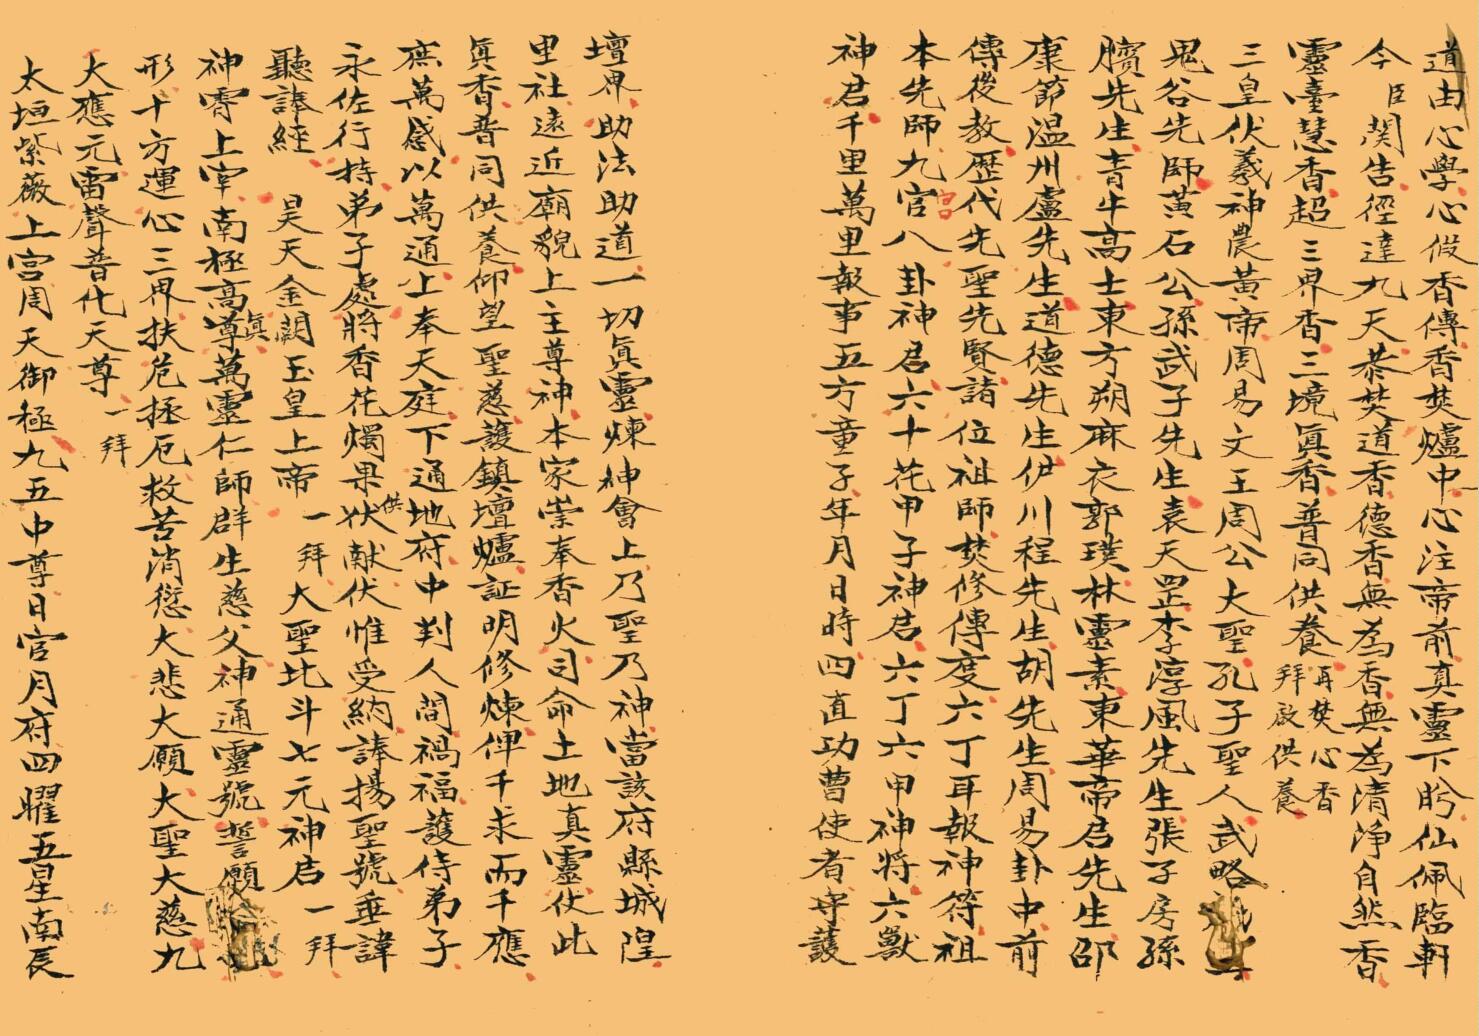 道由心學心假香傳香焚爐中心注帝前真靈下盻仙佩臨軒
今臣關告徑達九天恭焚道香德香無為香無為清淨自然香
靈臺慧香超三界香三境真香普同供養再焚心香拜啟供養
三皇伏羲神農黃帝周易文王周公大聖孔子聖人武略
鬼谷先師黃石公孫武子先生袁天罡李淳風先生張子房孫
臏先生青牛高士東方朔麻衣郭璞林靈素東華帝君先生邵
康節溫州盧先生道德先生伊川程先生胡先生周易卦中前
傳後教歷代先聖先賢諸位祖師焚修傳度六丁耳報神符祖
本先師九官宮八卦神君六十花甲子神君六丁六甲神將六獸
神君千里萬里報事五方童子年月日時四直功曹使者守護
壇界助法助道一切眞靈煉神會上乃聖乃神當該府縣城隍
里社遠近廟貌上主尊神本家崇奉香火司命土地真靈仗此
眞香普同供養仰望聖慈護鎮壇爐証明修煉俾千求而千應
庶萬感以萬通上奉天庭下通地府中判人間禍福護侍弟子
永佐行持弟子處將香花燭果狀供献伏惟受納諱揚聖號垂諱
聽諱經 昊天金闕玉皇上帝 一拜大聖北斗七元神君一拜
神霄上宰南極高尊真萬靈仁師群生慈父神通靈號誓願
形十方運心三界扶危拯厄救苦消愆大悲大願大聖大慈九
天應元雷聲普化天尊一拜
太垣紫薇上宮周天御極九五中尊日宮月府四曜五星南辰